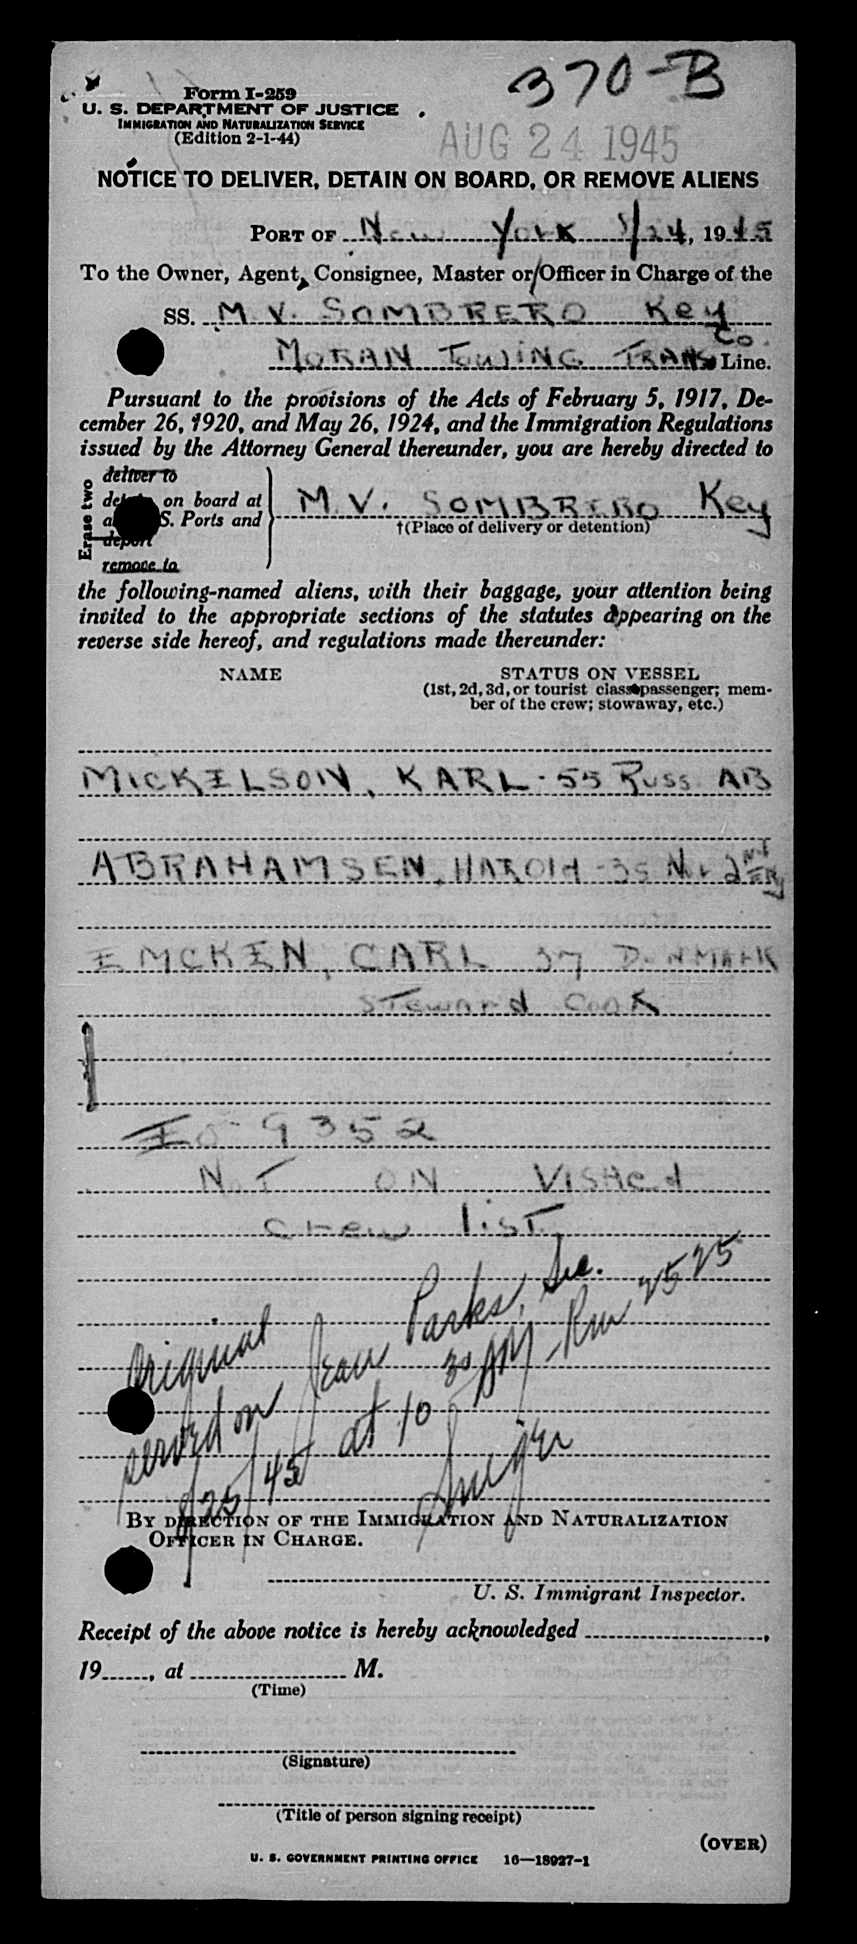 370-B
Form I-259
U. S. DEPARTMENT OF JUSTICE
IMMIGRATION AND NATURALIZATION SERVICE
(Edition 2-1-44)
AUG 24 1945
NOTICE TO DELIVER, DETAIN ON BOARD, OR REMOVE ALIENS
PORT OF New York 8/24, 1945
To the Owner, Agent, Consignee, Master or Officer in Charge of the
SS. M. V. SOMBRERO Key
MORAN TOWING TRANS Co. Line.
Pursuant to the provisions of the Acts of February 5, 1917, De-
cember 26, 1920, and May 26, 1924, and the Immigration Regulations
issued by the Attorney General thereunder, you are hereby directed to
Erase two
deliver to
on board at
S. Ports and
deport
remove to
M. V. SOMBRERO Key
†(Place of delivery or detention)
the following-named aliens, with their baggage, your attention being
invited to the appropriate sections of the statutes appearing on the
reverse side hereof, and regulations made thereunder:
NAME STATUS ON VESSEL
(1st, 2d, 3d, or tourist class passenger; mem-
ber of the crew; stowaway, etc.)
MICKELSON, KARL - 55 Russ. AB
ABRAHAMSEN, HAROLD - 35 Nor 2
EMCKEN, CARL 37 DENMARK
STeward Cook
9352
NOT ON VISAED
crew list
Original
served on Jean Parks, Sec.
8/25/45 at 10 30 AM - Rm 2525
BY DIRECTION OF THE IMMIGRATION AND NATURALIZATION
OFFICER IN CHARGE.
U. S. Immigrant Inspector.
Receipt of the above notice is hereby acknowledged ,
19 , at M.
(Time)
(Signature)
(Title of person signing receipt)
(OVER)
U. S. GOVERNMENT PRINTING OFFICE 16—18927-1